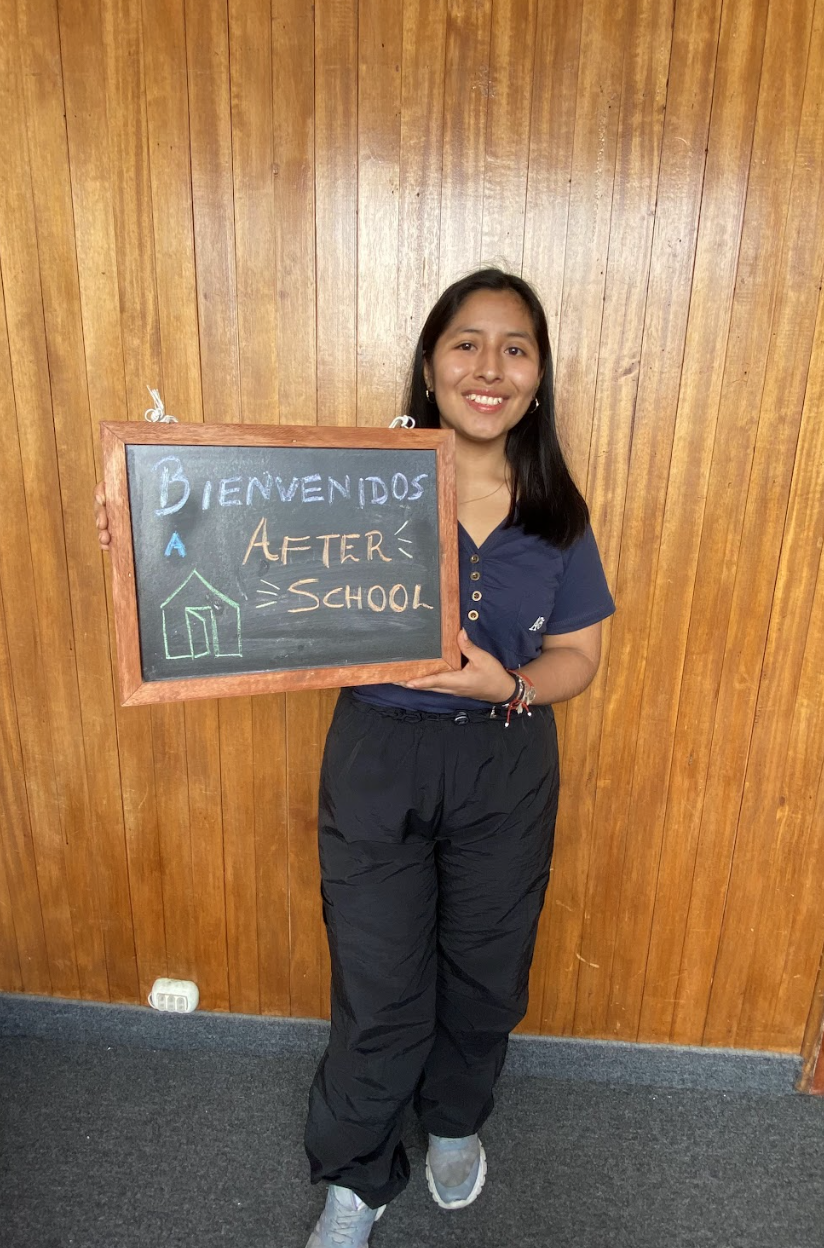 BIENVENIDOS
A AFTER
SCHOOL